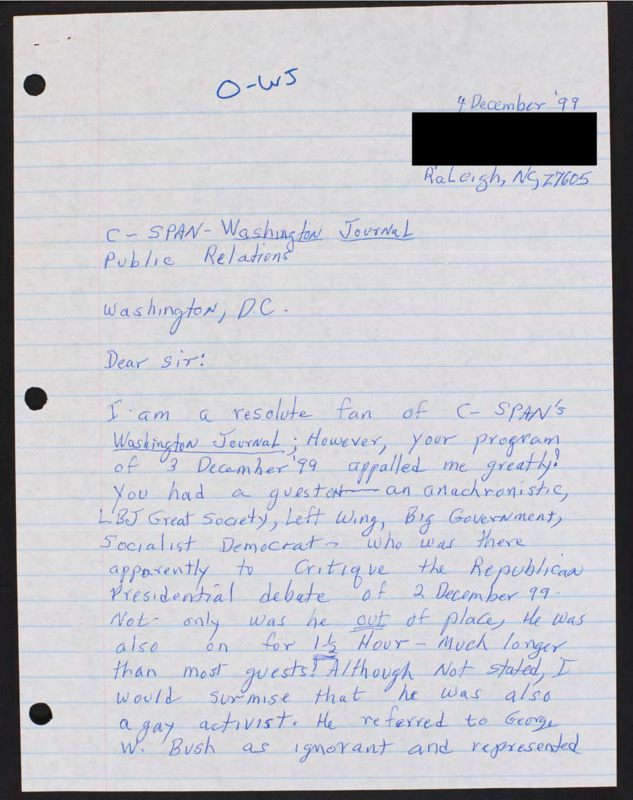 O-WJ
4 December '99
Raleigh, NC, 27605
C- SPAN- Washington Journal
Public Relations
Washington, D.C.
Dear Sir:
I am a resolute fan of C- SPAN's
Washington Journal; However, your program
of 3 December '99 appalled me greatly!
You had a guest on — an anachronistic,
LBJ Great Society, Left Wing, Big Government,
Socialist Democrat - who was there
apparently to critique the Republican
Presidential debate of 2 December 99.
Not only was he out of place, He was
also on for 1½ Hour - Much longer
than most guests! Although Not stated, I
would surmise that he was also
a gay activist. He referred to George
W. Bush as ignorant and represented